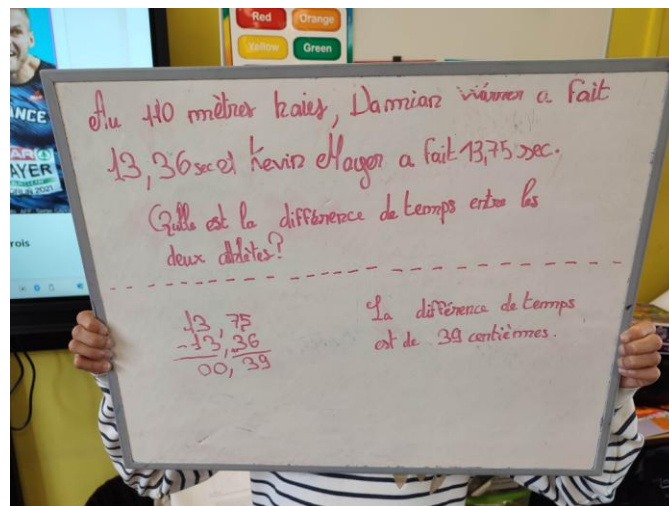 Red
Orange
Yellow
Green
NCE
AYER
BERLIN 2021
rois
Au 110 mètres haies, Damian warner a fait
13,36 sec et Kevin Mayer a fait 13,75 sec.
Quelle est la différence de temps entre les
deux athlètes?
13,75
-13,36
00,39
La différence de temps
est de 39 centièmes.